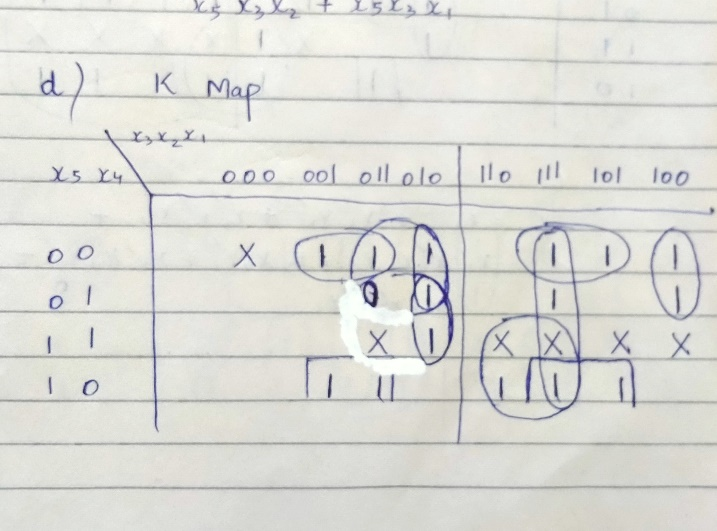 x5 x3 x2 + x5 x3 x1
1 1
d) K Map
x3 x2 x1
x5 x4 000 001 011 010 110 111 101 100
0 0 X 1 1 1 1 1 1
0 1 0 1 1 1
1 1 X 1 X X X X
1 0 1 11 1 1 1